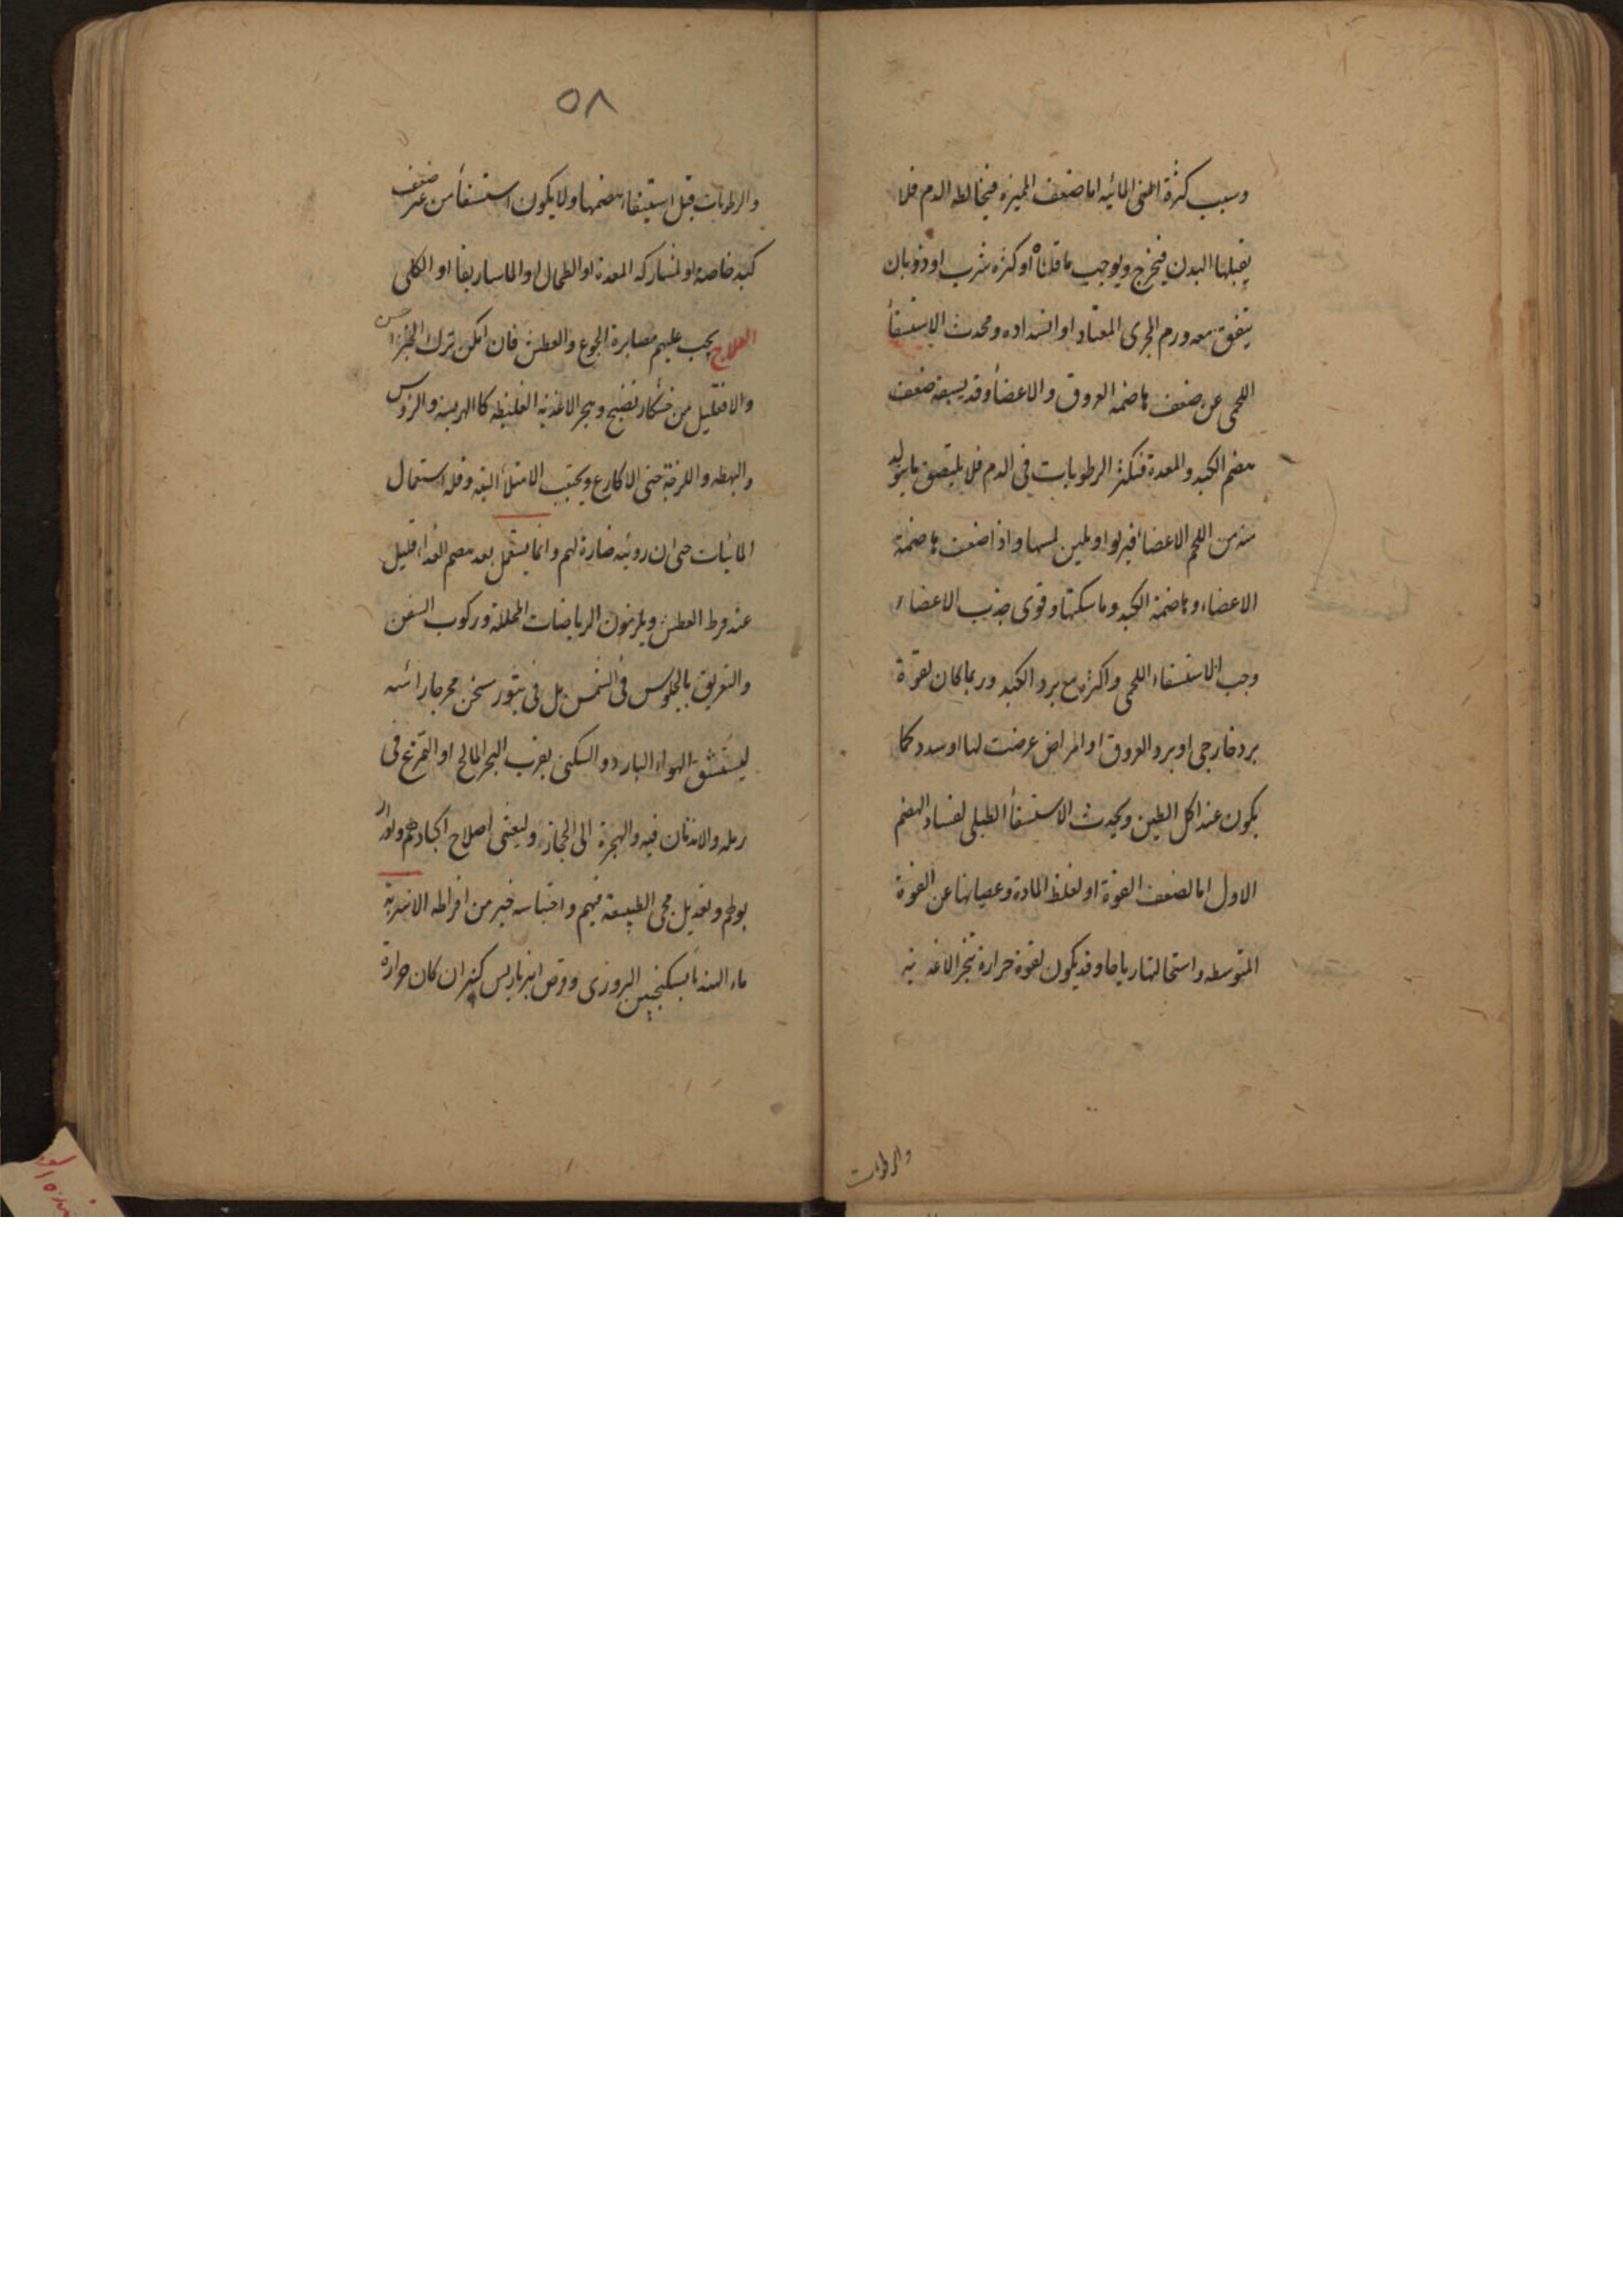 وسبب كثرة المائيه اما ضعف المميزة فيخالطه الدم فلا
يقبلها البدن فيخرج ويوجب ما قلناه او كثرة شرب او ذوبان
يتفق معه ورم المجرى المعتاد او انسداده ومحدث الاستسقأ
اللحمى عن ضعف هاضمة العروق والاعضأ وقد يسبقه ضعف
هضم الكبد والمعدة فتكثر الرطوبات فى الدم فلا يلتصق ما يتولد
منه من اللحم الاعضاء فيربوا ويلين لمسها واذا ضعفت هاضمة
الاعضاء وهاضمة الكبد وماسكتها وقوى جذب الاعضاء
وجب الاستسقاء اللحمى واكثره مع برد الكبد وربما كان لقوة
برد خارجى او برد العروق او امراض عرضت لها او سدد كما
يكون عند اكل الطين ويحدث الاستسقأ الطبلى لفساد الهضم
الاول اما لضعف القوة او لغلظ المادة وعصيانها عن القوة
المتوسطه واستحالتها رياحا وقد يكون لقوة حرارة تبخر الاغذية
والرطوبات
٥٨
والرطوبات قبل استيفاء هضمها ولا يكون استسقأ من غير ضعف
كبد خاصة او لمشاركه المعدة او الطحال او الماساريقا او الكلى
العلاج يجب عليهم مصابرة الجوع والعطش فان امكن ترك الخبز احسن
والا فقليل من خشكار نضيج وهجر الاغذيه الغليظه كا الهريسة والرؤس
والبهطه واللزجة حتى الاكارع ويجتنب الامتلأ البته وقله استعمال
المائيات حتى ان رويته ضارة لهم وانما يستعمل بعد هضم الغدا قليل
عند فرط العطش ويلزمون الرياضات المحللة وركوب السفن
والتعريق بالجلوس فى الشمس بل فى تنور سخن مخرجا رأسه
ليستنشق الهواء البارد والسكنى بقرب البحر المالح او التمرغ فى
رمله والاندفان فيه والهجرة الى الحجاز وليعنى اصلاح اكبادهم وادرار
بولهم وتعديل مجى الطبيعة فيهم واحتباسه خير من افراطه الاشربة
ماء الهندبا بسكنجبين البزورى وقرص انبرباريس كبير ان كان حرارة